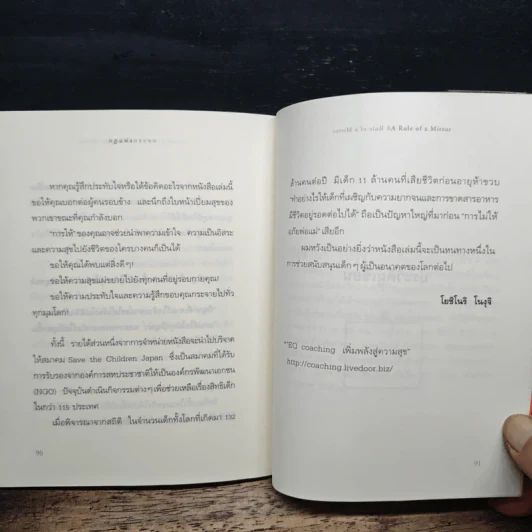 กฎแห่งกระจก
หากคุณรู้สึกประทับใจหรือได้ข้อคิดอะไรจากหนังสือเล่มนี้
ขอให้คุณบอกต่อผู้คนรอบข้าง และนึกถึงใบหน้าเปี่ยมสุขของ
พวกเขาขณะที่คุณกำลังบอก
"การให้" ของคุณอาจช่วยนำพาความเข้าใจ ความเป็นอิสระ
และความสุขไปยังชีวิตของใครบางคนก็เป็นได้
ขอให้คุณได้พบแต่สิ่งดีๆ!
ขอให้ความสุขแผ่ขยายไปยังทุกคนที่อยู่รอบกายคุณ!
ขอให้ความประทับใจและความรู้สึกขอบคุณกระจายไปทั่ว
ทุกมุมโลก!
ทั้งนี้ รายได้ส่วนหนึ่งจากการจำหน่ายหนังสือจะนำไปบริจาค
ให้สมาคม Save the Children Japan ซึ่งเป็นสมาคมที่ได้รับ
การรับรองจากองค์การสหประชาชาติให้เป็นองค์กรพัฒนาเอกชน
(NGO) ปัจจุบันดำเนินกิจกรรมต่างๆ เพื่อช่วยเหลือเรื่องสิทธิเด็ก
ในกว่า 115 ประเทศ
เมื่อพิจารณาจากสถิติ ในจำนวนเด็กทั้งโลกที่เกิดมา 132
90
A Rule of a Mirror
ล้านคนต่อปี มีเด็ก 11 ล้านคนที่เสียชีวิตก่อนอายุห้าขวบ
"ทำอย่างไรให้เด็กที่เผชิญกับความยากจนและการขาดสารอาหาร
มีชีวิตอยู่รอดต่อไปได้" ถือเป็นปัญหาใหญ่ที่มาก่อน "การไม่ให้
อภัยพ่อแม่" เสียอีก
ผมหวังเป็นอย่างยิ่งว่าหนังสือเล่มนี้จะเป็นหนทางหนึ่งใน
การช่วยสนับสนุนเด็กๆ ผู้เป็นอนาคตของโลกต่อไป
โยชิโนริ โนงุจิ
"EQ coaching เพิ่มพลังสู่ความสุข"
http://coaching.livedoor.biz/
91